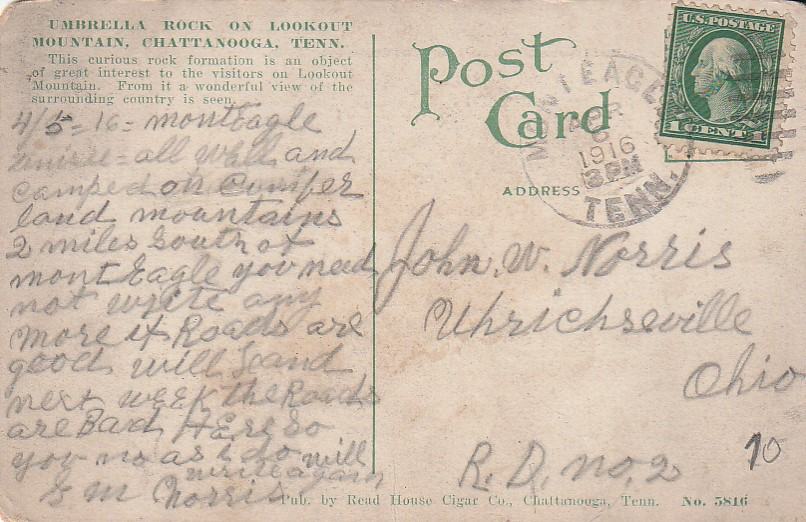 UMBRELLA ROCK ON LOOKOUT
MOUNTAIN, CHATTANOOGA, TENN.
This curious rock formation is an object
of great interest to the visitors on Lookout
Mountain. From it a wonderful view of the
surrounding country is seen.
4/5=16= montEagle
all Well and
camped on Cumber
land mountains
2 miles South of
montEagle you need
not write any
more if Roads are
good will
next week the Roads
are Bad HEre So
you no as I do will
write again
G M Norris
Post
Card
ADDRESS
U.S. POSTAGE
1 CENT 1
MONTEAGLE
APR
1916
3 PM
TENN.
John. W. Norris
Uhrichseville
Ohio
R. D. no. 2
70
Pub. by Read House Cigar Co., Chattanooga, Tenn. No. 5816